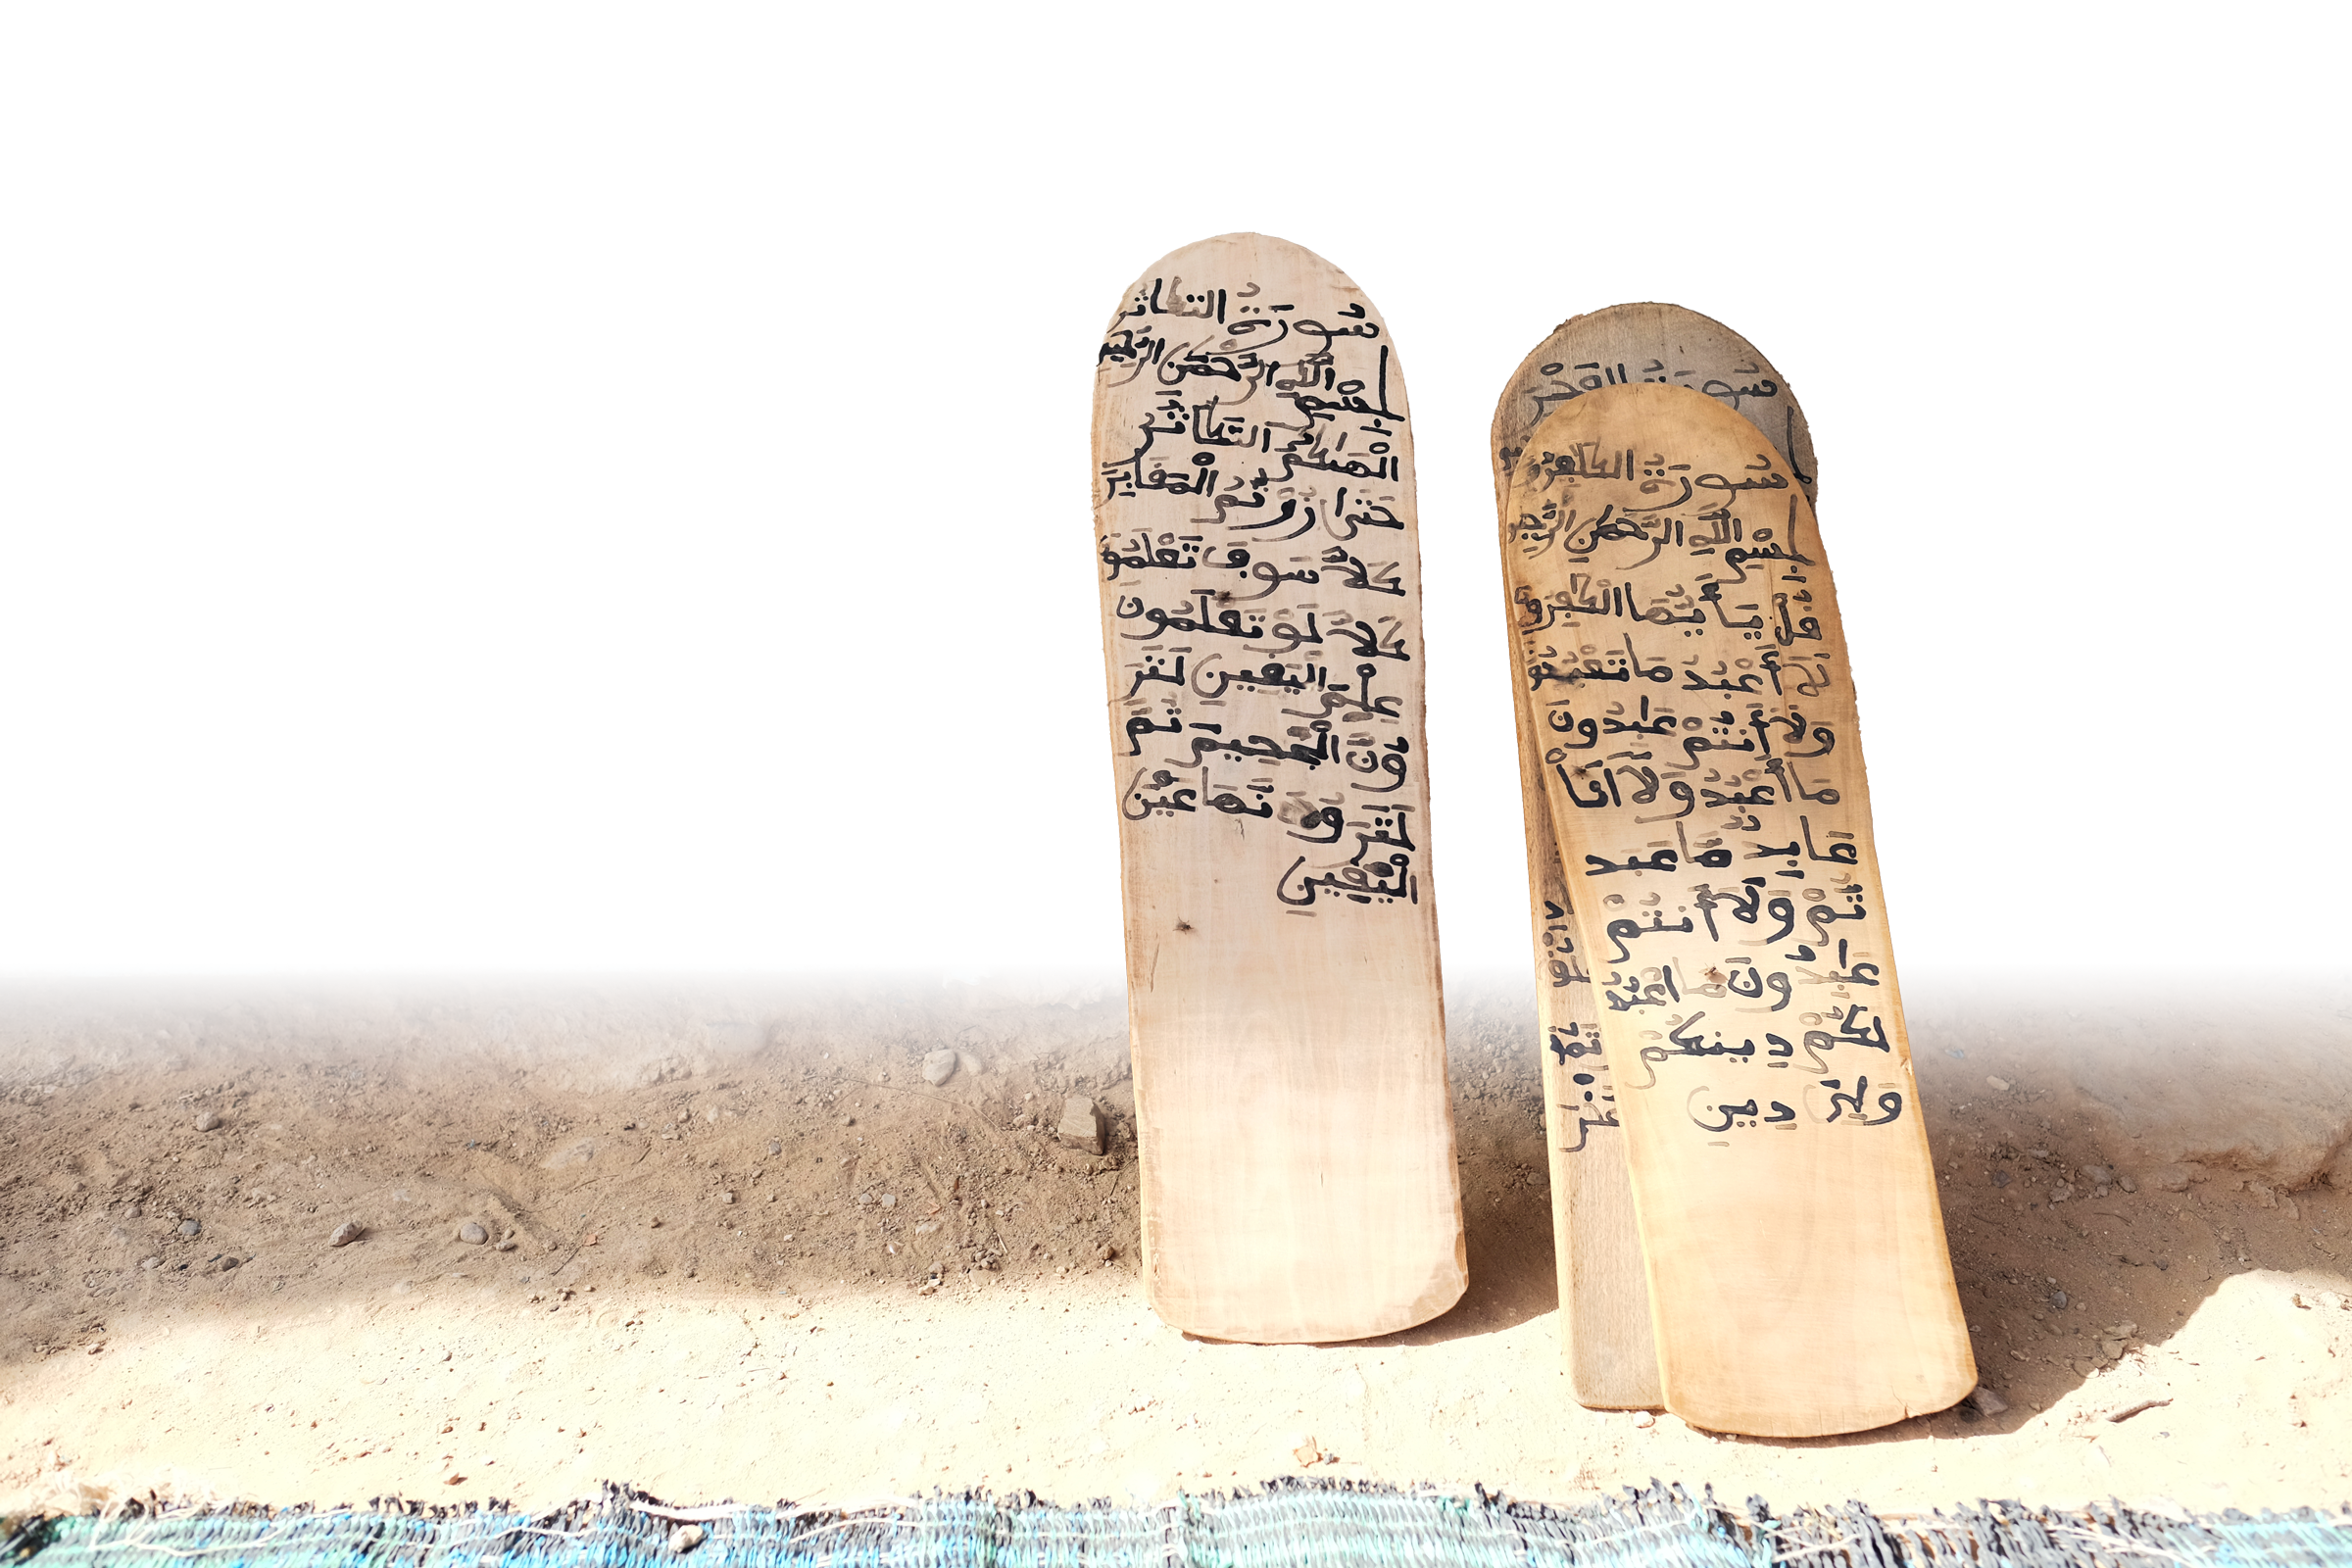 سورة التكاثر
بسم الله الرحمن الرحيم
ألهيكم التكاثر
حتى زرتم المقابر
كلا سوف تعلمو
كلا لو تعلمون
علم اليقين لتر
ون الجحيم ثم
لتر ونها عين
اليقين
سورة الفجر
سورة الكافرون
بسم الله الرحمن الرحيم
قل يا أيها الكافرون
لا أعبد ما تعبدو
ولا أنتم عبدون
ما أعبد ولا أنا
عا بد ما عبد
تم ولا أنتم
عبدون ما أعبد
لكم دينكم
ولي دين